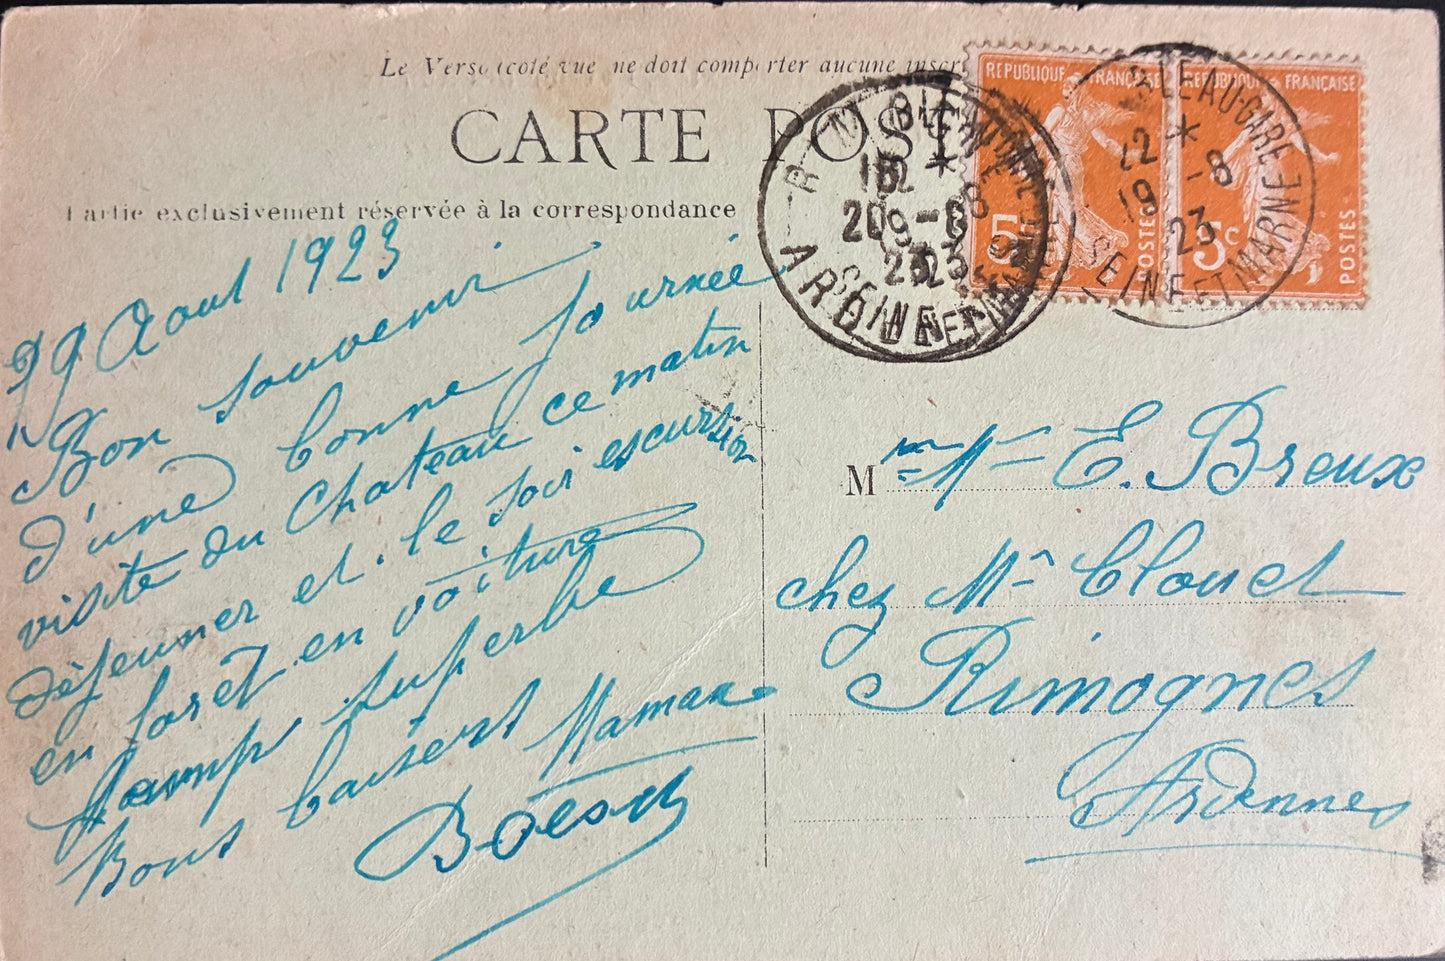 Le Verso (coté vue ne doit comporter aucune inscr
CARTE POST
Partie exclusivement réservée à la correspondance
REPUBLIQUE FRANÇAISE
5
POSTES
REPUBLIQUE FRANÇAISE
5c
POSTES
BLEAU-GARE
12 *
19 -8
23
SEINE-ET-MARNE
20 -8
23
ARDENNES
19 Aout 1923
Bon souvenir
d'une bonne journée
visite du Chateau ce matin
déjeuner et le soir escursion
en foret en voiture
temp superbe
Bons baisers Maman
M me Mme E. Breux
chez Mr Clouet
Rimognes
Ardennes